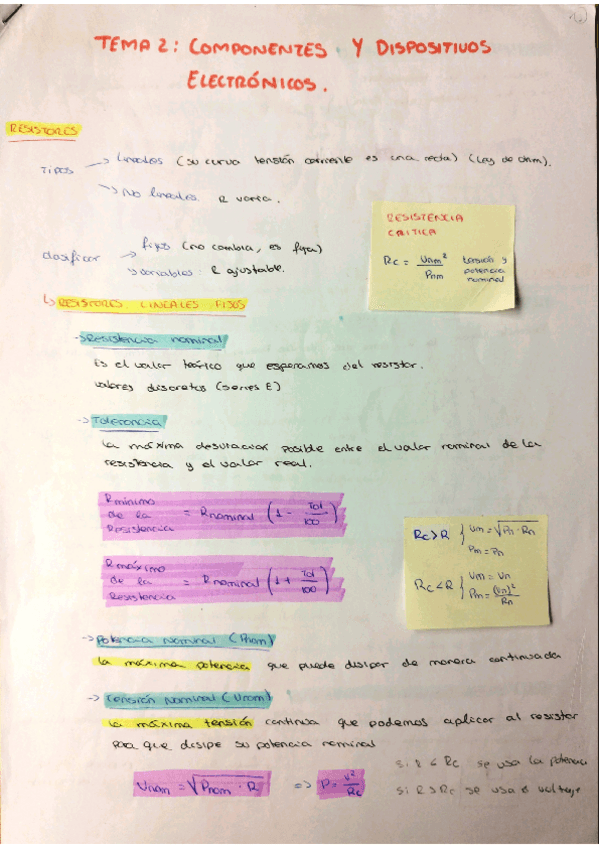 TEMA 2: COMPONENTES Y DISPOSITIVOS
ELECTRÓNICOS.
RESISTORES
TIPOS → Lineales (su curva tensión corriente es una recta) (Ley de Ohm).
→ No lineales R varía.
RESISTENCIA
CRITICA
Rc = Vnm² / Pnm tensión y potencia nominal
clasificar → fijos (no cambia, es fija)
→ variables: R ajustable.
↳ RESISTORES LINEALES FIJOS
→ Resistencia nominal
Es el valor teórico que esperamos del resistor.
valores discretos (series E)
→ Tolerancia
La máxima desviación posible entre el valor nominal de la
resistencia y el valor real.
Rmínimo de la Resistencia = Rnominal (1 - Tol/100)
Rmáximo de la Resistencia = Rnominal (1 + Tol/100)
Rc > R { Vm = √Pn · Rn
Pm = Pn
Rc < R { Vm = Vn
Pm = (Vn)²/Rn
→ Potencia nominal (Pnom)
La máxima potencia que puede disipar de manera continuada
→ Tensión Nominal (Vnom)
La máxima tensión continua que podemos aplicar al resistor
para que disipe su potencia nominal
Vnom = √Pnom · R => P = V²/Rc
si R < Rc se usa la potencia
si R > Rc se usa el voltaje